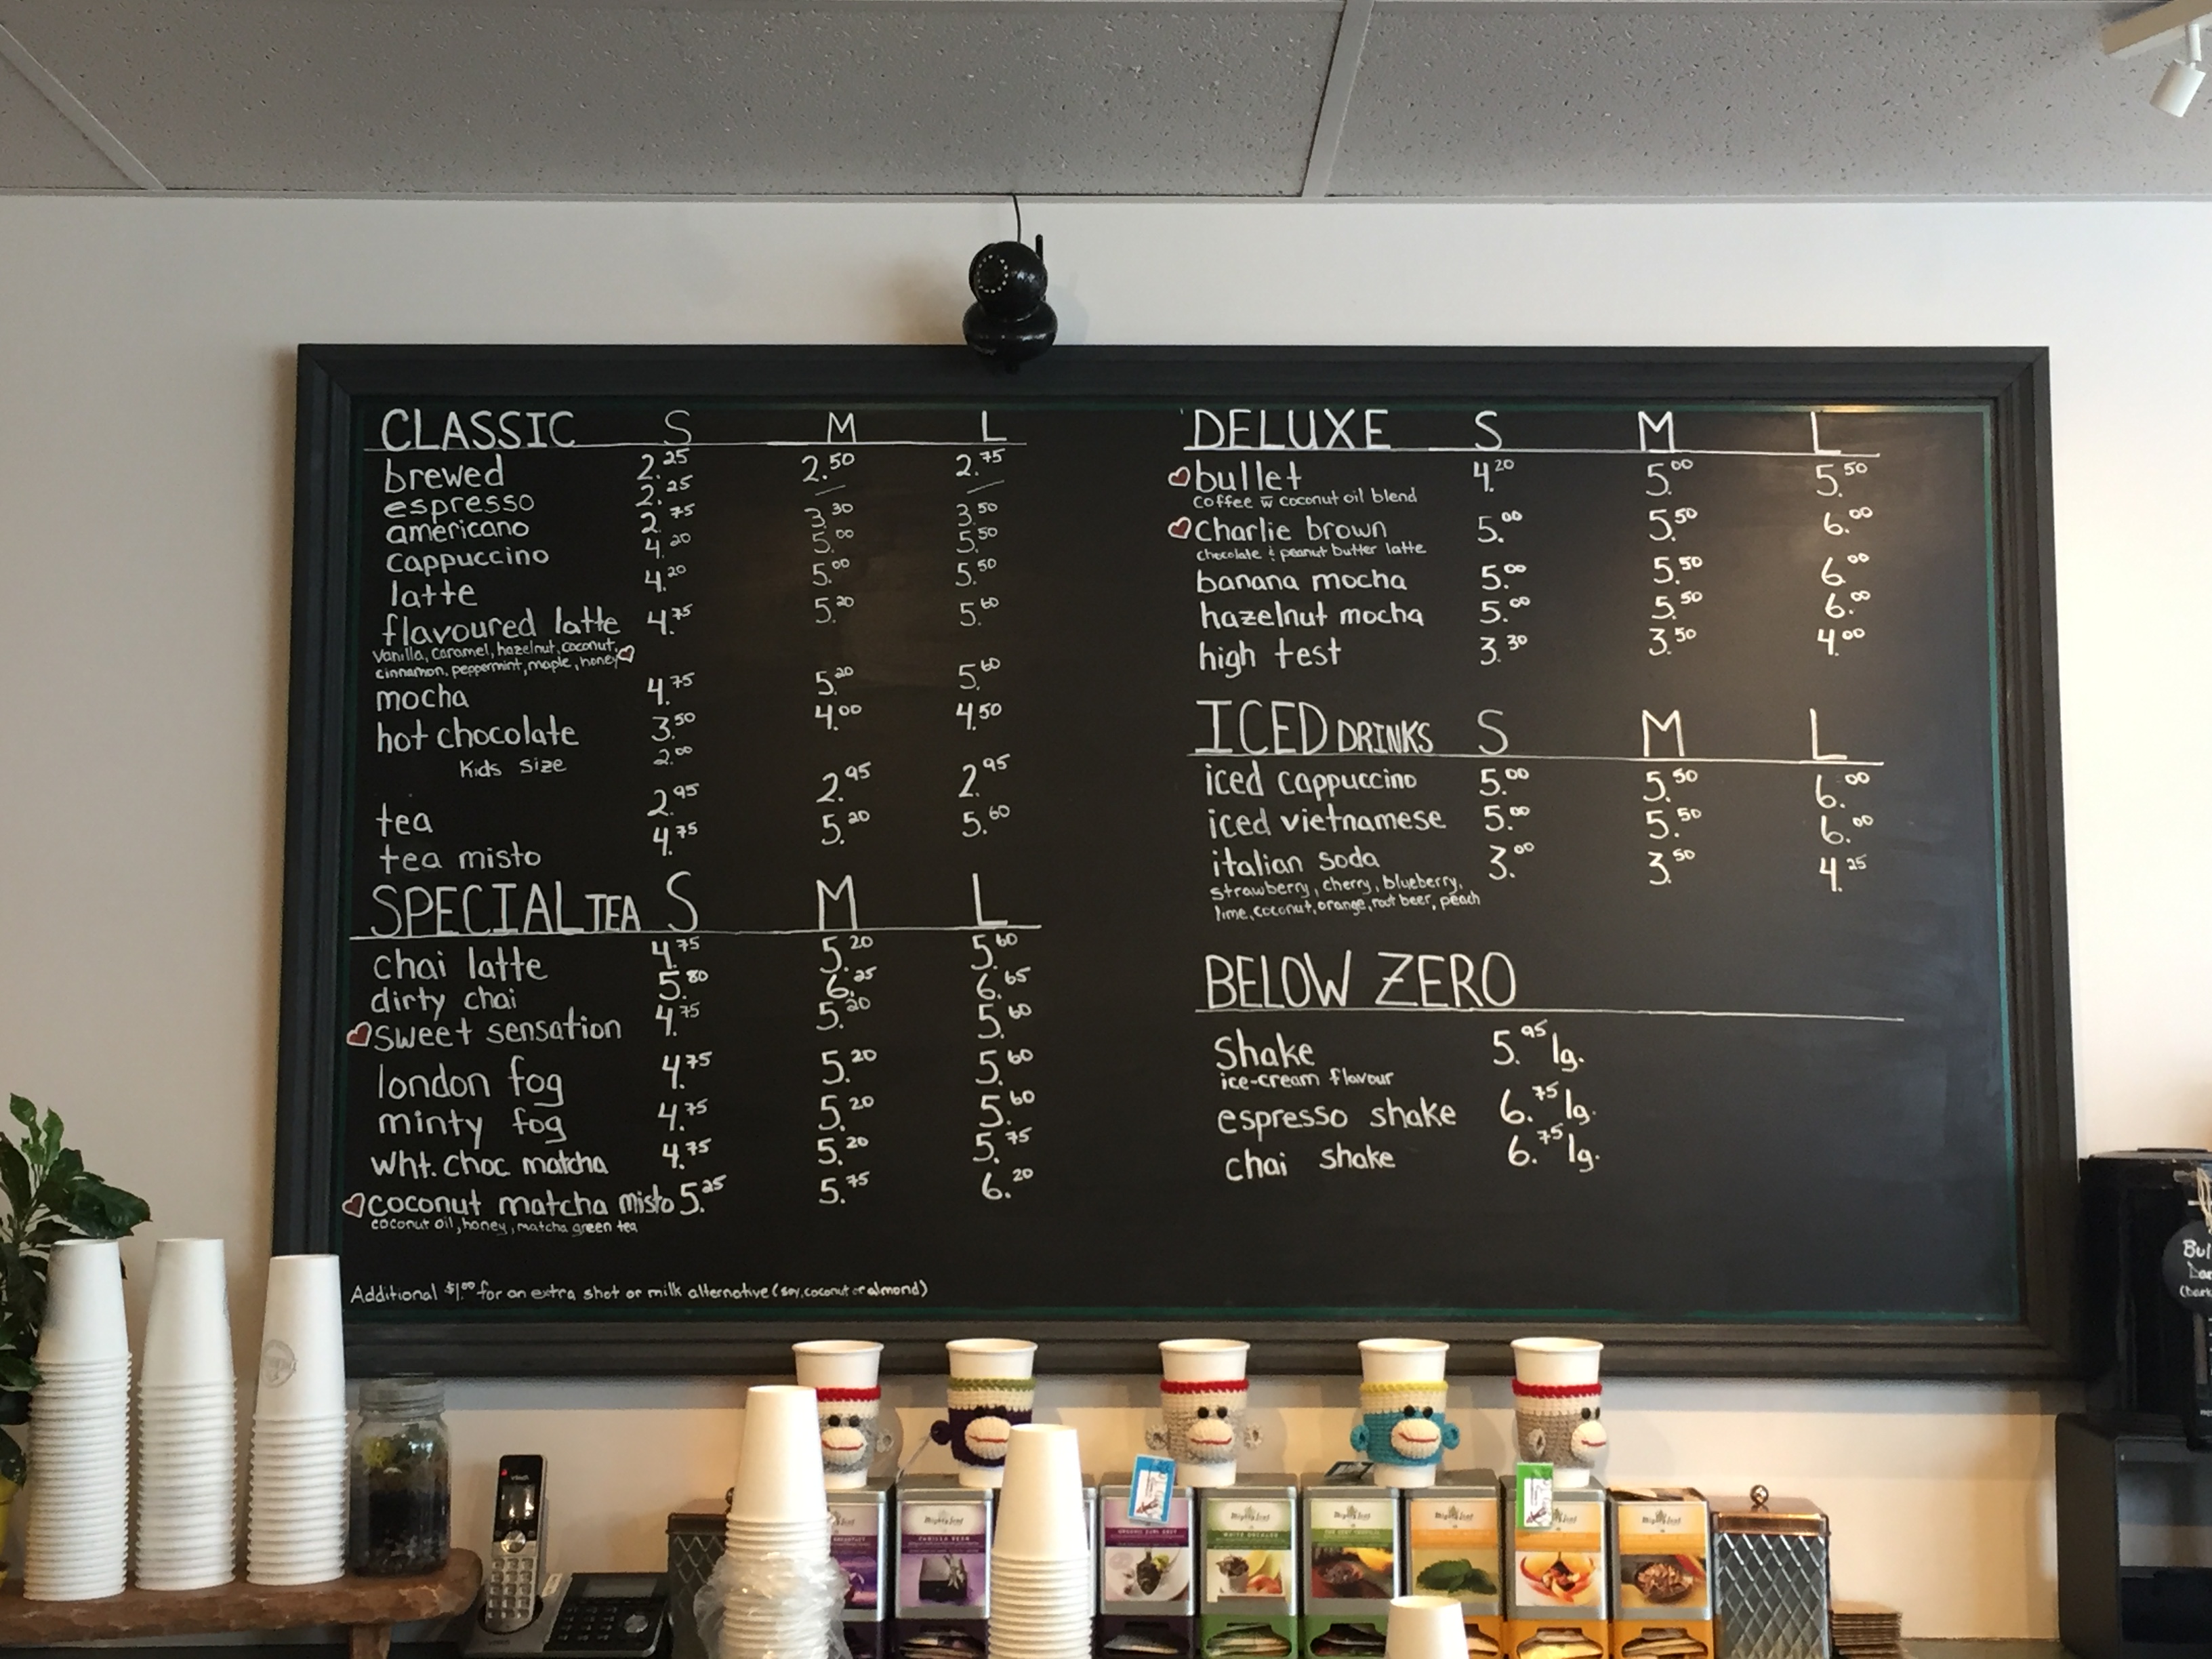 CLASSIC S M L
brewed 2.25 2.50 2.75
espresso 2.25 — —
americano 2.75 3.30 3.50
cappuccino 4.20 5.00 5.50
latte 4.20 5.00 5.50
flavoured latte 4.75 5.20 5.60
vanilla, caramel, hazelnut, coconut,
cinnamon, peppermint, maple, honey
mocha 4.75 5.20 5.60
hot chocolate 3.50 4.00 4.50
Kids Size 2.00
tea 2.95 2.95 2.95
tea misto 4.75 5.20 5.60
SPECIAL TEA S M L
chai latte 4.75 5.20 5.60
dirty chai 5.80 6.25 6.65
sweet sensation 4.75 5.20 5.60
london fog 4.75 5.20 5.60
minty fog 4.75 5.20 5.60
wht. choc matcha 4.75 5.20 5.75
coconut matcha misto 5.25 5.75 6.20
coconut oil, honey, matcha green tea
Additional $1.00 for an extra shot or milk alternative (soy, coconut or almond)
DELUXE S M L
bullet 4.20 5.00 5.50
coffee w coconut oil blend
Charlie brown 5.00 5.50 6.00
chocolate & peanut butter latte
banana mocha 5.00 5.50 6.00
hazelnut mocha 5.00 5.50 6.00
high test 3.30 3.50 4.00
ICED DRINKS S M L
iced cappuccino 5.00 5.50 6.00
iced vietnamese 5.00 5.50 6.00
italian soda 3.00 3.50 4.25
strawberry, cherry, blueberry,
lime, coconut, orange, root beer, peach
BELOW ZERO
Shake 5.95 lg.
ice-cream flavour
espresso shake 6.75 lg.
chai shake 6.75 lg.
vtech
Mighty Leaf
VANILLA BEAN
Mighty Leaf
ORGANIC EARL GREY
Mighty Leaf
WHITE ORCHARD
Mighty Leaf
Mighty Leaf
Mighty Leaf
Mighty Leaf